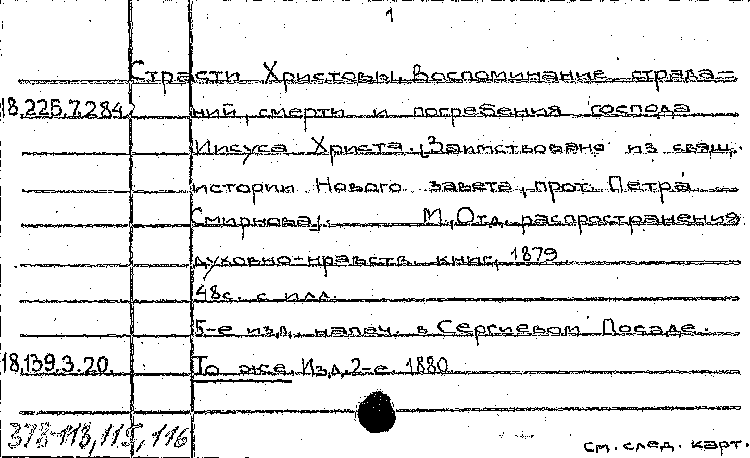 1
Страсти Христовы. Воспоминание страда-
18.225.7.284 ний, смерти и погребения господа
Иисуса Христа. (Заимствовано из свящ.
истории Нового завета, прот. Петра
Смирнова). М., Отд. распространения
духовно-нравств. книг, 1879
48с. с илл.
5-е изд. напеч. в Сергиевом Посаде.
18.139.3.20. То же. Изд. 2-е. 1880
373-113, 115, 116
см. след. карт.